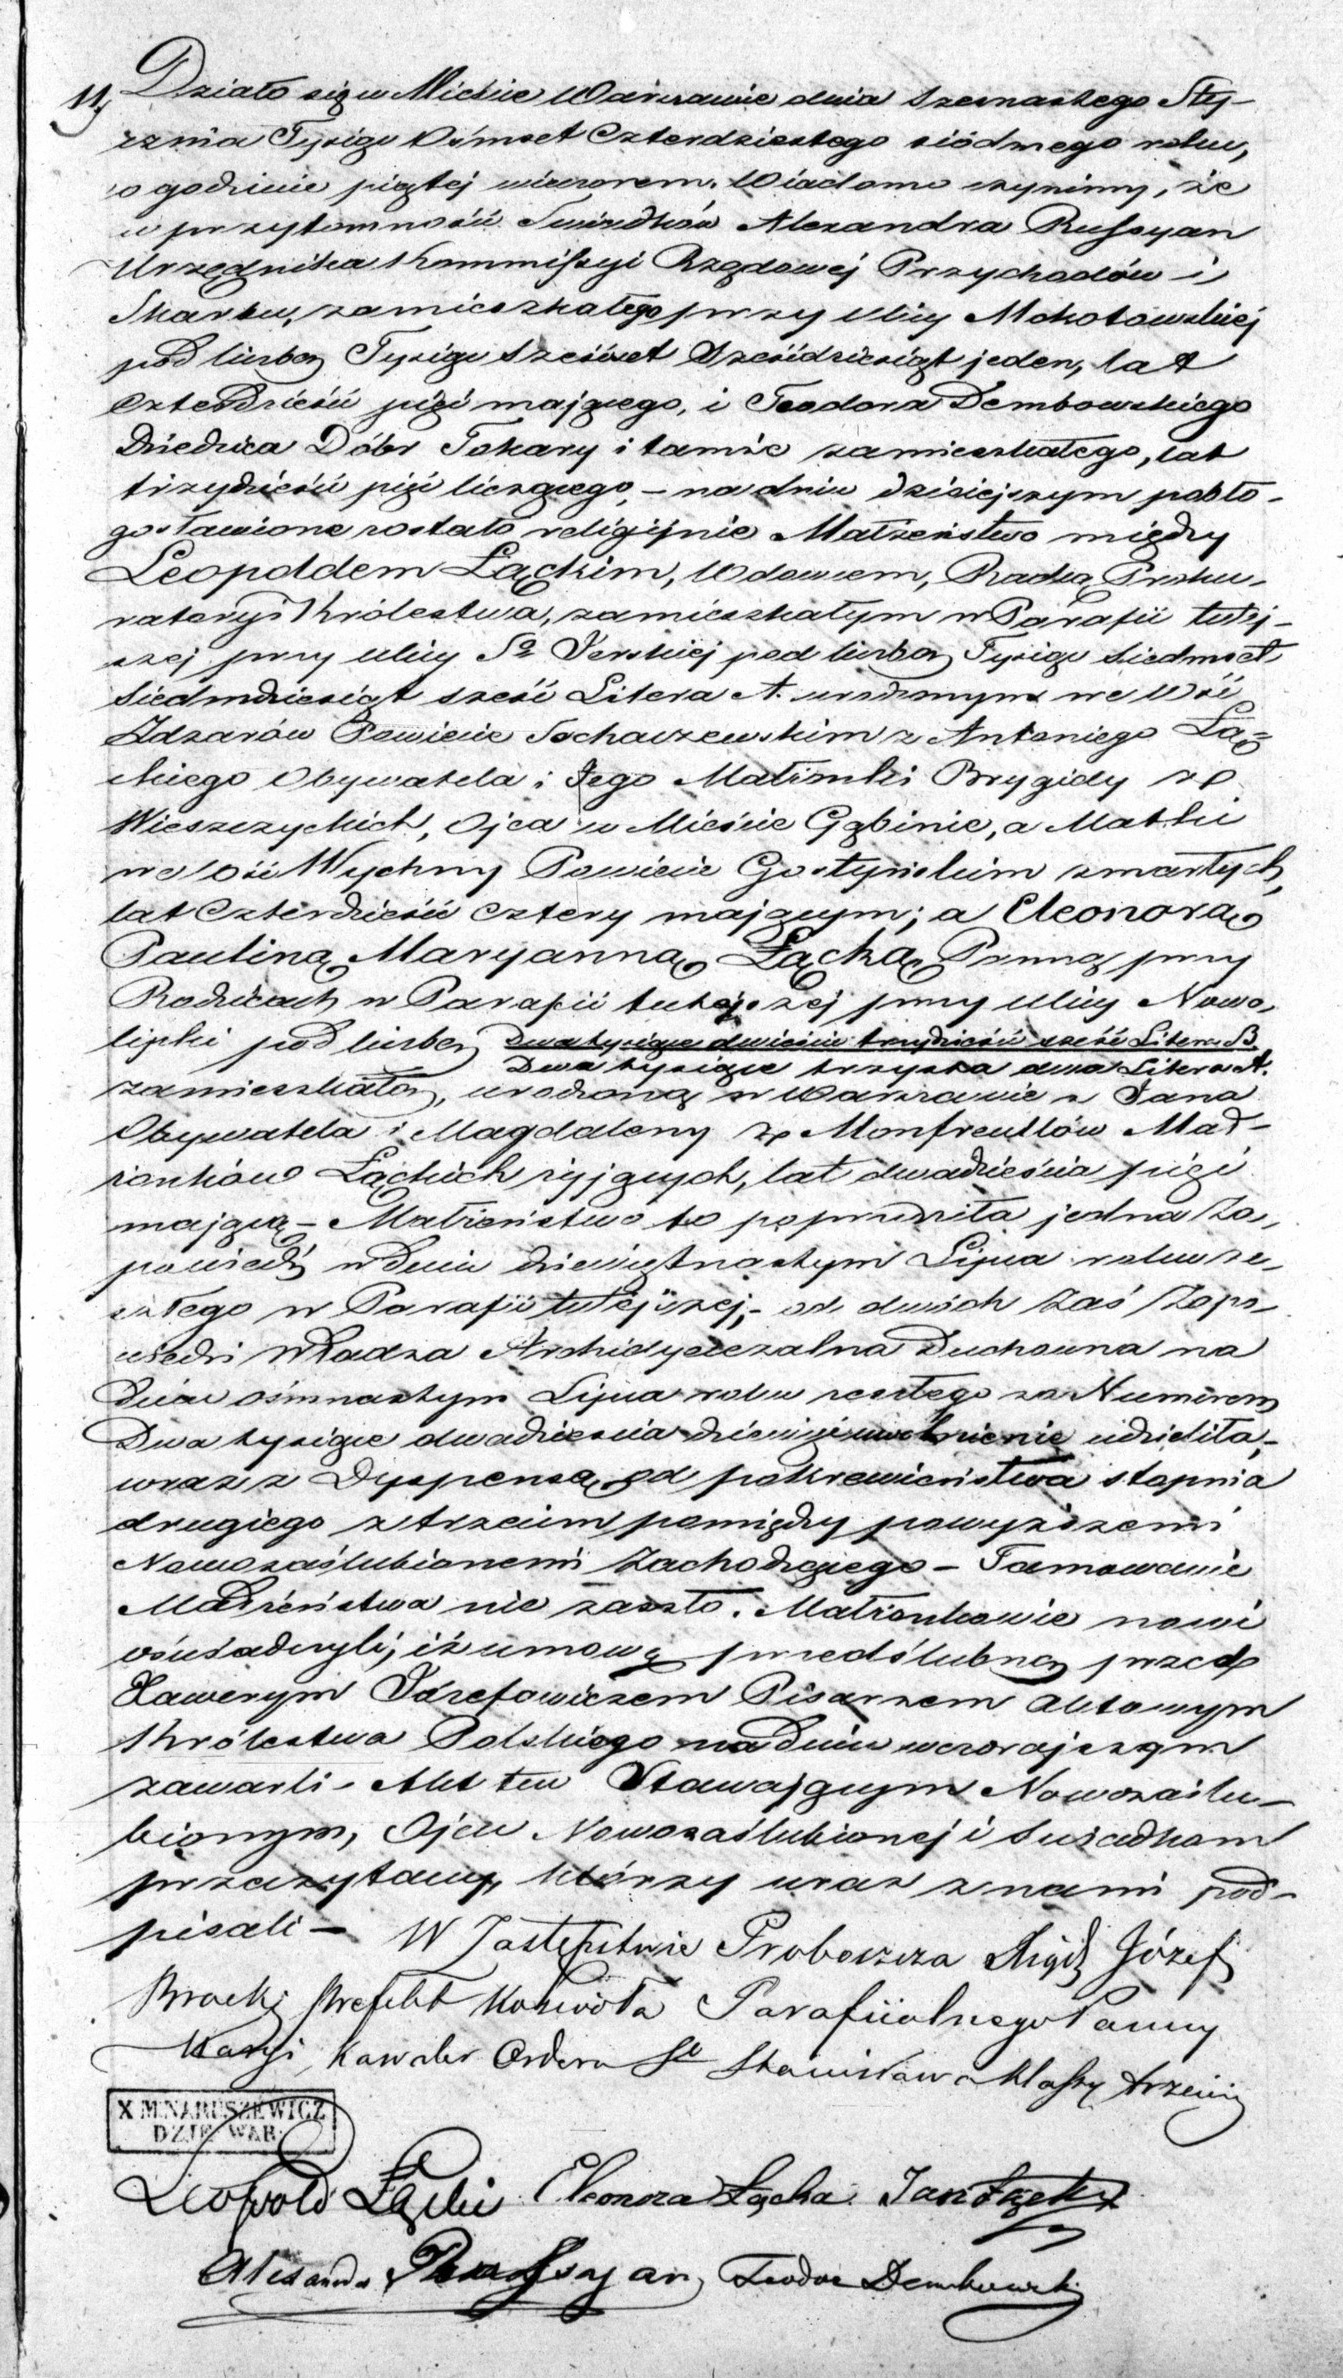 11, Działo się w Mieście Warszawie dnia szesnastego Sty-
cznia Tysiąc Ośmset Czterdziestego siódmego roku,
o godzinie piątej wieczorem. Wiadomo czynimy, że
w przytomności Świadków Alexandra Russyan
Urzędnika Kommissyi Rządowej Przychodów i
Skarbu, zamieszkałego przy ulicy Mokotowskiej
pod liczbą Tysiąc sześćset sześćdziesiąt jeden, lat
czterdzieści pięć mającego, i Teodora Dembowskiego
Dziedzica Dóbr Tokary i tamże zamieszkałego, lat
trzydzieści pięć liczącego, – na dniu dzisiejszym pobło-
gosławione zostało religijnie Małżeństwo między
Leopoldem Łąckim, Wdowcem, Radcą Proku-
ratoryi Królestwa, zamieszkałym w Parafii tutej-
szej przy ulicy Sto Jerskiej pod liczbą Tysiąc siedmset
siedmdziesiąt sześć Litera A. urodzonym we Wsi
Zdzarów Powiecie Sochaczewskim z Antoniego Łą-
ckiego Obywatela i Jego Małżonki Brygidy z
Wieszczyckich, Ojca w Mieście Gąbinie, a Matki
we Wsi Wychny Powiecie Gostyńskim zmarłych,
lat czterdzieści cztery mającym; a Eleonorą
Pauliną Maryanną Łącką Panną przy
Rodzicach w Parafii tutejszej przy ulicy Nowo-
lipki pod liczbą Dwa tysiące dwieście trzydzieści sześć Litera B.
Dwa tysiące trzysta dwa Litera A.
zamieszkałą, urodzoną w Warszawie z Jana
Obywatela i Magdaleny z Monfreullów Mał-
żonków Łąckich żyjących, lat dwadzieścia pięć
mającą – Małżeństwo to poprzedziła jedna Za-
powiedź w dniu dziewiętnastym Lipca roku ze-
szłego w Parafii tutejszej, – od dwóch zaś Zapo-
wiedzi Władza Archidyecezalna Duchowna na
dniu ośmnastym Lipca roku zeszłego za Numerem
Dwa tysiące dwadzieścia dziewięć uwolnienie udzieliła,
wraz z Dyspensą od pokrewieństwa stopnia
drugiego z trzecim pomiędzy powyższemi
Nowozaślubionemi zachodzącego – Tamowanie
Małżeństwa nie zaszło. Małżonkowie nowi
oświadczyli, iż umowę przedślubną przed
Xawerym Józefowiczem Pisarzem Aktowym
Królestwa Polskiego na dniu wczorajszym
zawarli – Akt ten Stawającym Nowozaślu-
bionym, Ojcu Nowozaślubionej i Świadkom
przeczytany, którzy wraz z nami pod-
pisali – W Zastępstwie Proboszcza Xiądz Józef
Bracki Prefekt Kościoła Parafiialnego Panny
Maryi Kawaler Orderu So Stanisława klassy trzeciej
X M.NARUSZEWICZ
DZIE. WAR.
Leopold Łącki Eleonora Łącka Jan Łącki
Alexander Russyan Teodor Dembowski